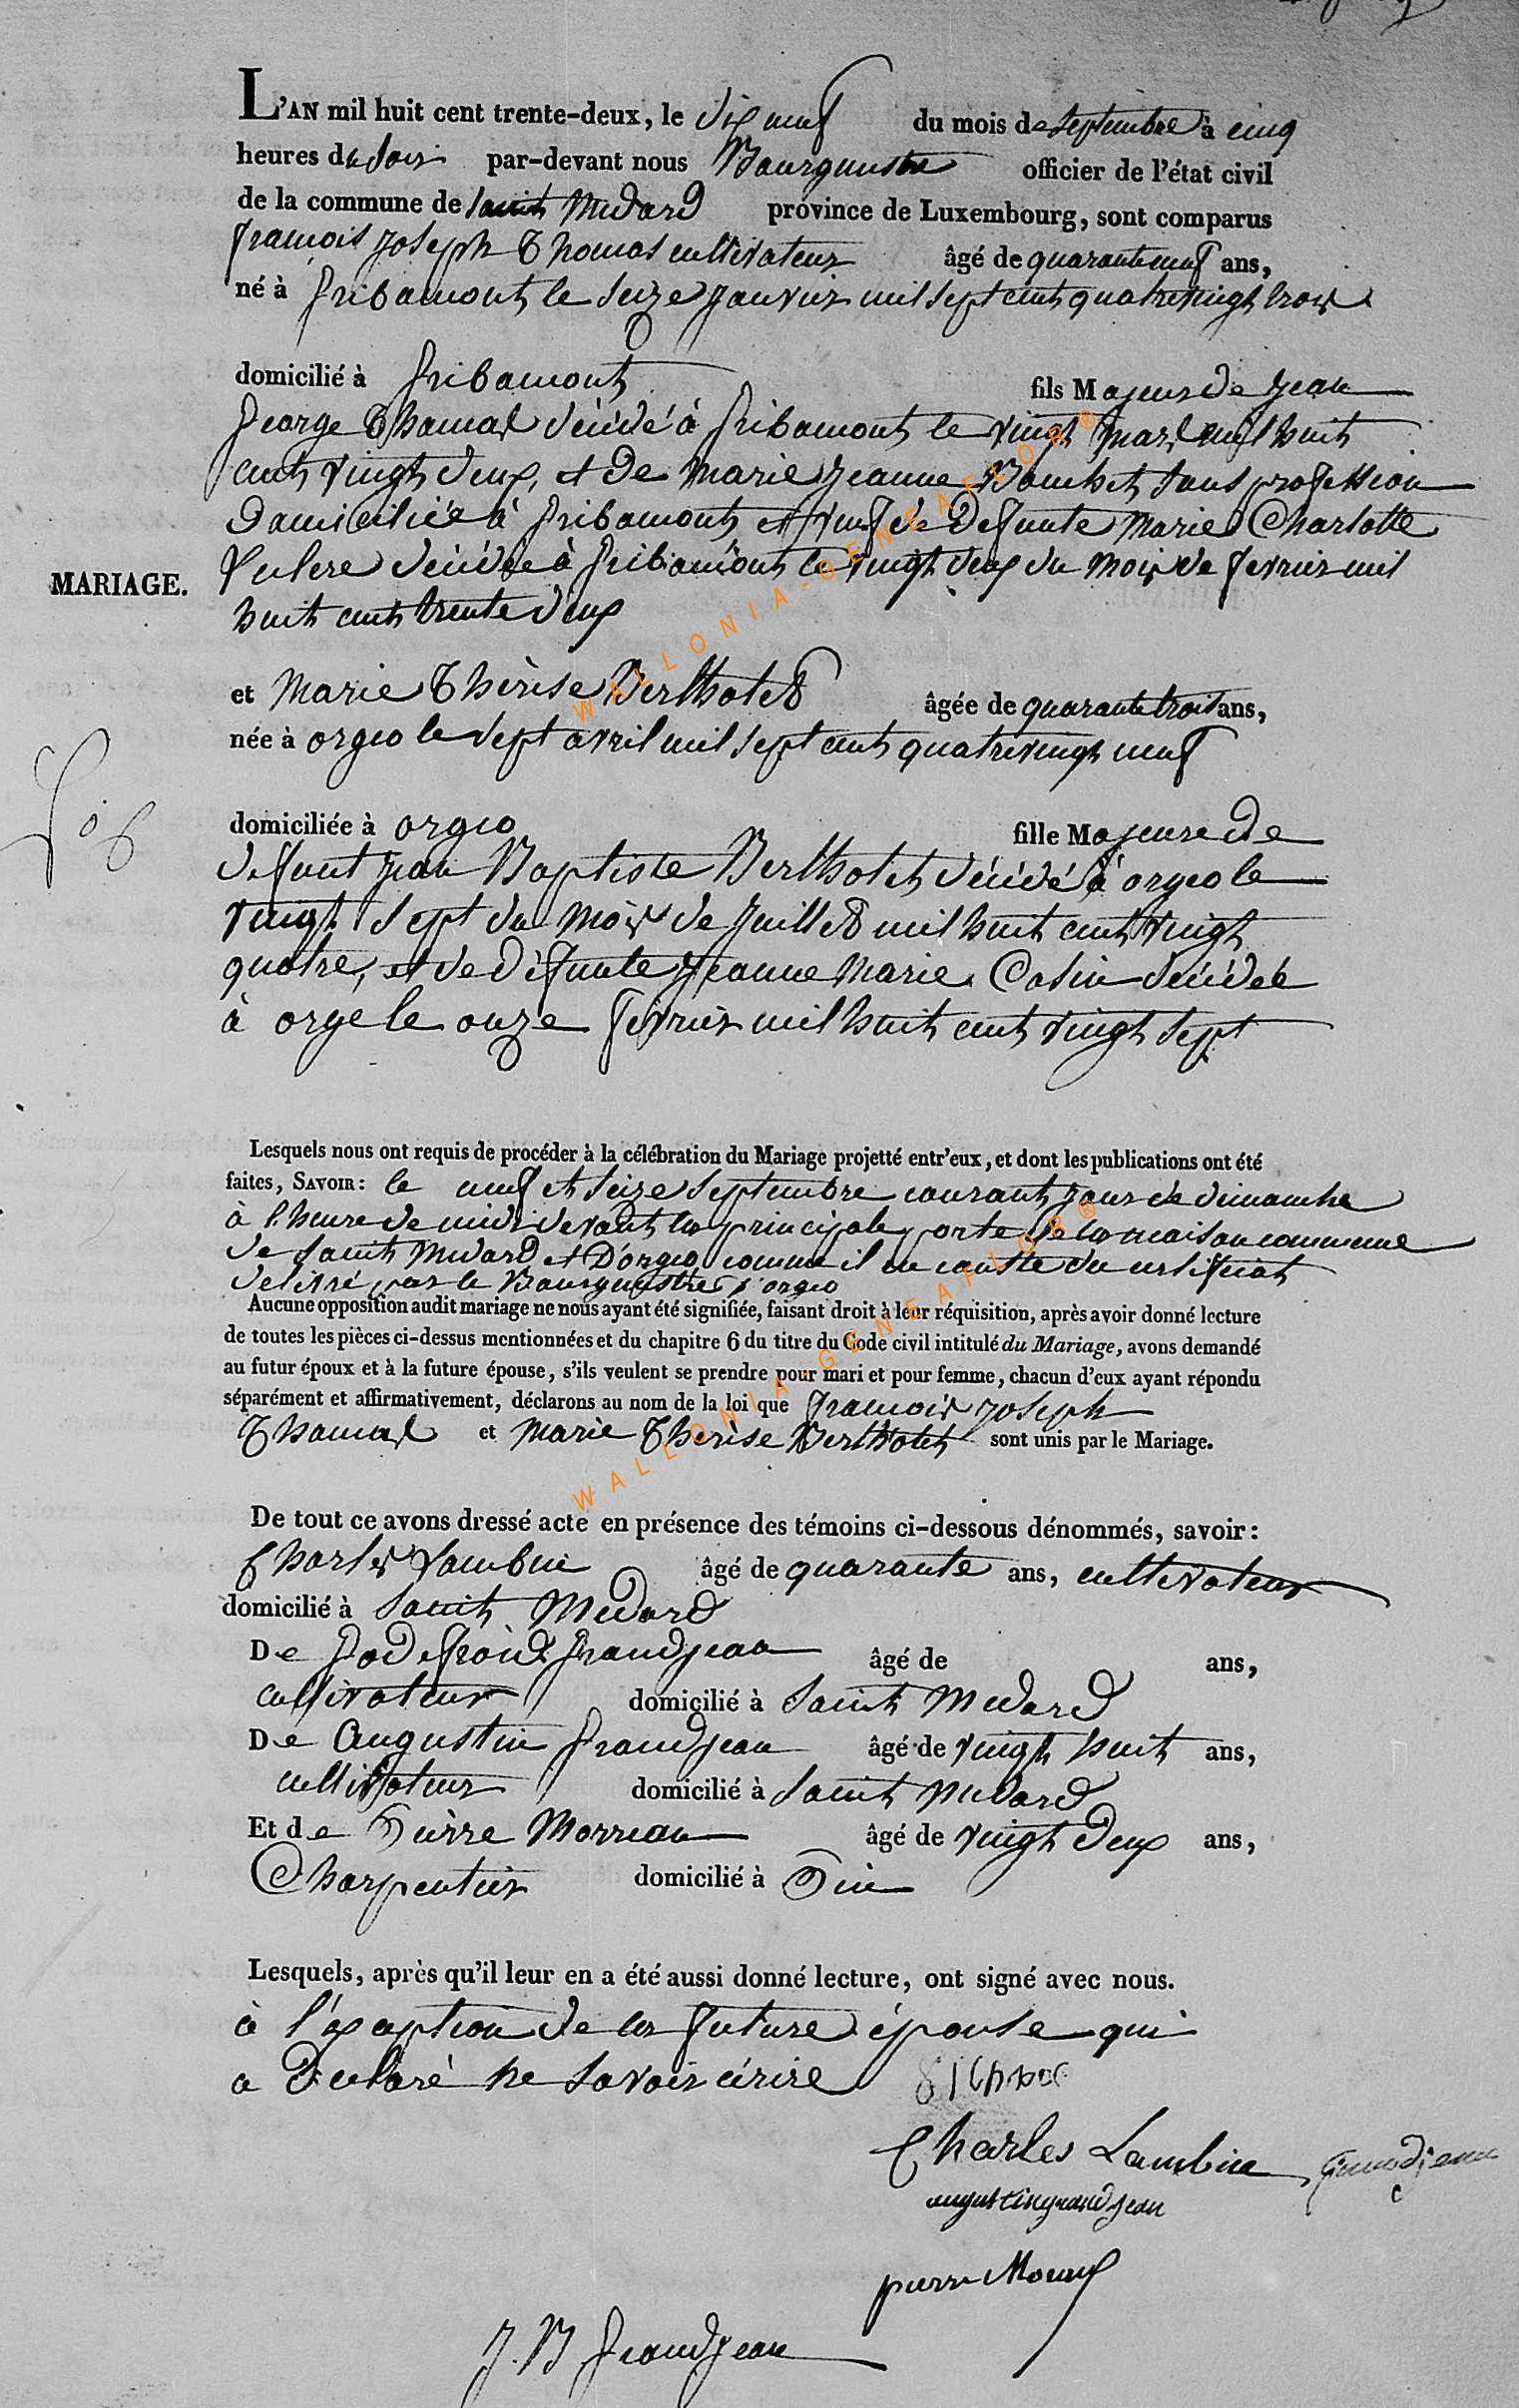 L'AN mil huit cent trente-deux, le dix neuf du mois de septembre à cinq
heures du soir par-devant nous Bourgmestre officier de l'état civil
de la commune de saint Medard province de Luxembourg, sont comparus
françois joseph Thomas cultivateur âgé de quarante neuf ans,
né à gribamont le seize janvier mil sept cent quatre vingt trois
domicilié à gribamont fils Majeur de jean
george Thomas décédé à gribamont le vingt mars mil huit
cent vingt deux, et de marie jeanne Bouchet sans profession
domiciliée à gribamont et veuf de defunte marie Charlotte
décédée à gribamont le vingt deux du mois de fevrier mil
MARIAGE.
huit cent trente deux
et marie Thérèse Bertholet âgée de quarante trois ans,
née à orgeo le sept avril mil sept cent quatre vingt neuf
domiciliée à orgeo fille Majeure de
defunt jean Baptiste Bertholet décédé à orgeo le
vingt sept du mois de juillet mil huit cent vingt
quatre, et de défunte jeanne marie Colin décédée
à orge le onze fevrier mil huit cent vingt sept
Lesquels nous ont requis de procéder à la célébration du Mariage projetté entr'eux, et dont les publications ont été
faites, SAVOIR: le neuf et seize septembre courant jour de dimanche
à l'heure de midi devant la principale porte de la maison commune
de saint medard et D'orgeo comme il en conste du certificat
delivré par le Bourgmestre d'orgeo
Aucune opposition audit mariage ne nous ayant été signifiée, faisant droit à leur réquisition, après avoir donné lecture
de toutes les pièces ci-dessus mentionnées et du chapitre 6 du titre du Code civil intitulé du Mariage, avons demandé
au futur époux et à la future épouse, s'ils veulent se prendre pour mari et pour femme, chacun d'eux ayant répondu
séparément et affirmativement, déclarons au nom de la loi que françois joseph
Thomas et marie Therèse Bertholet sont unis par le Mariage.
De tout ce avons dressé acte en présence des témoins ci-dessous dénommés, savoir:
Charles Lambin âgé de quarante ans, cultivateur
domicilié à saint Medard
De godefroid grandjean âgé de ans,
cultivateur domicilié à saint medard
De Augustin grandjean âgé de vingt huit ans,
cultivateur domicilié à saint medard
Et de Pierre Morreau âgé de vingt deux ans,
Charpentier domicilié à Pin
Lesquels, après qu'il leur en a été aussi donné lecture, ont signé avec nous.
à l'exception de la future épouse qui
a declaré ne savoir écrire
Charles Lambin grandjean
augustin grandjean
pierr
J. B grandjean
WALLONIA-GENEAFLOR®
WALLONIA-GENEAFLOR®